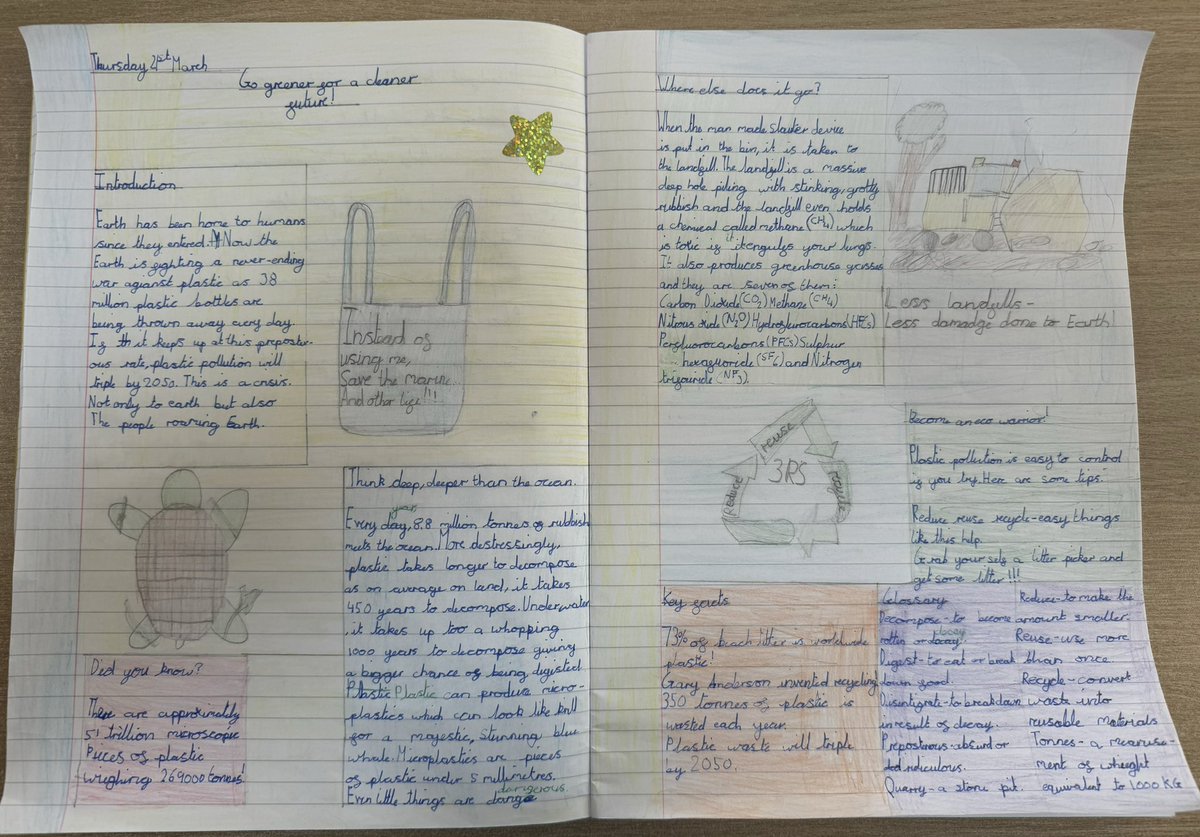 Thursday 21st March
Go greener for a cleaner
future!
Introduction
Earth has been home to humans
since they entered. Now the
Earth is fighting a never-ending
war against plastic as 38
million plastic bottles are
being thrown away every day.
If it keeps up at this prepostur-
ous rate, plastic pollution will
triple by 2050. This is a crisis.
Not only to earth but also
The people roaring Earth.
Instead of
using me,
Save the marine...
And other life!!!
Think deep, deeper than the ocean.
Every day, year 8.8 million tonnes of rubbish
meets the ocean. More destressingly,
plastic takes longer to decompose
as on average on land, it takes
450 years to decompose. Underwater
, it takes up too a whopping
1000 years to decompose giving
a bigger chance of being digisted.
Plastic Plastic can produce micro-
plastics which can look like krill
for a majestic, stunning blue
whale. Microplastics are pieces
of plastic under 5 millimetres.
Even little things are dange dangerous
Did you know?
There are approximately
51 trillion microscopic
Pieces of plastic
wieghing 269000 tonnes!
Where else does it go?
When the man made slauter device
is put in the bin, it is taken to
the landfill. The landfill is a massive
deep hole piling with stinking, grotty
rubbish and the landfill even holds
a chemical called methane (CH4) which
is toxic if it engulfs your lungs.
It also produces greenhouse gasses
and they are seven of them:
Carbon Dioxide (CO2) Methane (CH4)
Nitrous oxide (N2O) Hydroflurocarbons (HFCs)
Perflurocarbons (PFCs) Sulphur
hexafluoride (SF6) and Nitrogen
trifouride (NF3).
Less landfills-
Less damadge done to Earth!
reuse
Reduce
recycle
3RS
Become an eco warrior!
Plastic pollution is easy to control
if you try. Here are some tips.
Reduce reuse recycle-easy things
like this help.
Grab your self a litter picker and
get some litter!!!
Key facts
73% of beach litter is worldwide
plastic!
Gary Anderson invented recycling
350 tonnes of plastic is
wasted each year.
Plastic waste will triple
by 2050.
Glossary
Decompose- to become
rotten or decay.
Digest- to eat or break
down food.
Disintigrate- to breakdown
in result of decay.
Preposterous- absurd or
ridiculous.
Quarry- a stone pit.
Reduce- to make the
amount smaller.
Reuse- use more
than once.
Recycle- convert
waste into
reusable materials
Tonnes- a measure-
ment of wheight
equivalent to 1000 KG